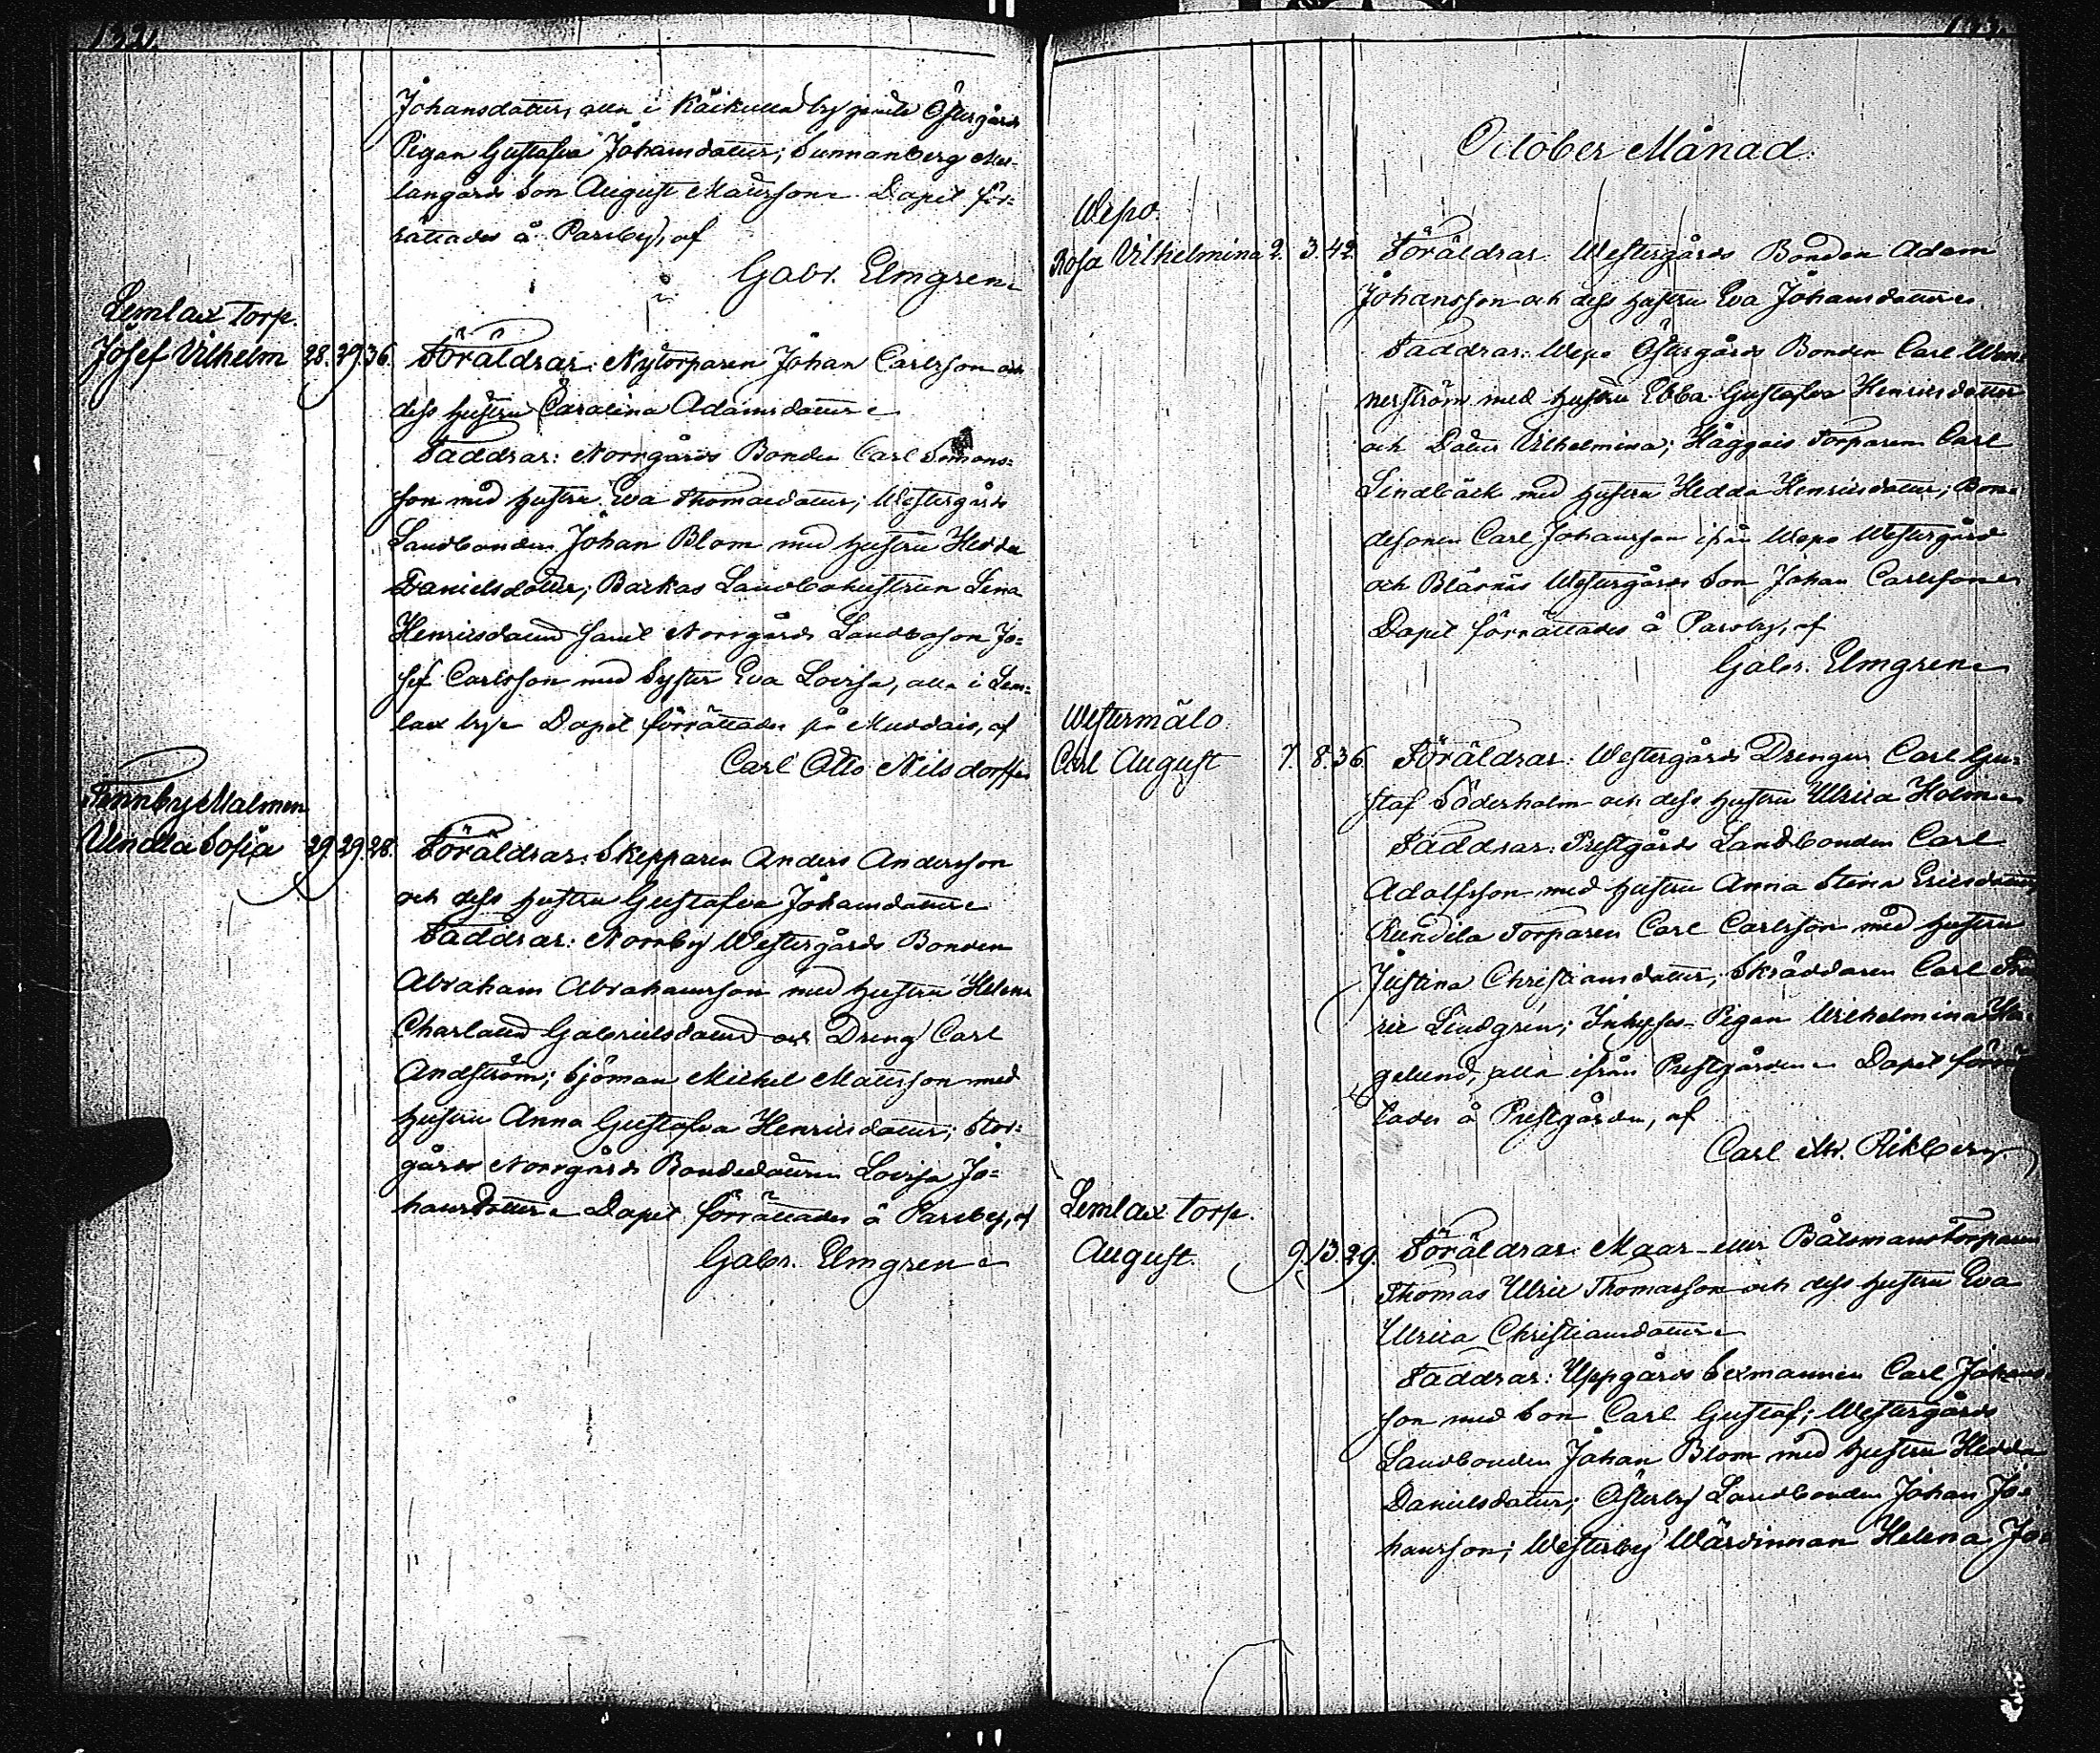 132.
Johansdotter, alla i Käikulla by samt Östergårds
Pigan Gustafva Johansdotter; Sunnanberg Mel-
langårds Son August Mattsson. Dopet för-
rättades å Parsby, af
Gabr. Elmgren.
Lemlax torp.
Josef Vilhelm 28. 29. 36. Föräldrar: Nytorparen Johan Carlsson och
dess hustru Carolina Adamsdotter.
Faddrar: Norrgårds Bonden Carl Simons-
son med hustru Eva Thomasdotter; Westergårds
Landbonden Johan Blom med hustru Hedda
Danielsdotter; Backas Landbohustrun Lena
Henricsdotter samt Norrgårds Landboson Jo-
sef Carlsson med Syster Eva Lovisa, alla i Lem-
lax by. Dopet förrättades på Muddais, af
Carl Otto Nilsdorff.
Finnby Malmen
Vendla Sofia 29. 29. 28. Föräldrar: Skepparen Anders Andersson
och dess hustru Gustafva Johansdotter.
Faddrar: Norrby Westergårds Bonden
Abraham Abrahamsson med hustru Helena
Charlotta Gabrielsdotter och Dreng Carl
Andström; Sjöman Michel Mattsson med
hustru Anna Gustafva Henricsdotter; Stor-
gårds Norrgårds Bondedottren Lovisa Jo-
hansdotter. Dopet förrättades å Parsby, af
Gabr. Elmgren.
133.
October Månad.
Wepo.
Rosa Vilhelmina 2. 3. 42. Föräldrar: Westergårds Bonden Adam
Johansson och dess hustru Eva Johansdotter.
Faddrar: Wepo Östergårds Bonden Carl Wen-
nerström med hustru Ebba Gustafva Henricsdotter
och Dotter Vilhelmina; Häggais Torparen Carl
Lindbäck med hustru Hedda Henricsdotter; Bon-
desonen Carl Johansson ifrån Wepo Westergård
och Bläsnäs Westergårds Son Johan Carlsson.
Dopet förrättades å Parsby, af
Gabr. Elmgren.
Westermälo.
Carl August 7. 8. 36. Föräldrar: Westergårds Drengen Carl Gu-
staf Söderholm och dess hustru Ulrica Holm.
Faddrar: Prestgårds Landbonden Carl
Adolfsson med hustru Anna Stina Ericsdotter
Torparen Carl Carlsson med hustru
Justina Christiansdotter; Skräddaren Carl
Lindgren; Inhyses-Pigan Wilhelmina
gelund, alla ifrån Prestgården. Dopet förrät-
tades å Prestgården, af
Carl Mr. Rikberg
Lemlax torp.
August. 9. 13. 29. Föräldrar: Maar- eller Båtsmanstorparen
Thomas Ulric Thomasson och dess hustru Eva
Ulrica Christiansdotter.
Faddrar: Uppgårds Sexmannen Carl Johans-
son med Son Carl Gustaf; Westergårds
Landbonden Johan Blom med hustru Hedda
Danielsdotter; Österby Landbonden Johan Jo-
hansson; Westerby Wärdinnan Helena Jo-